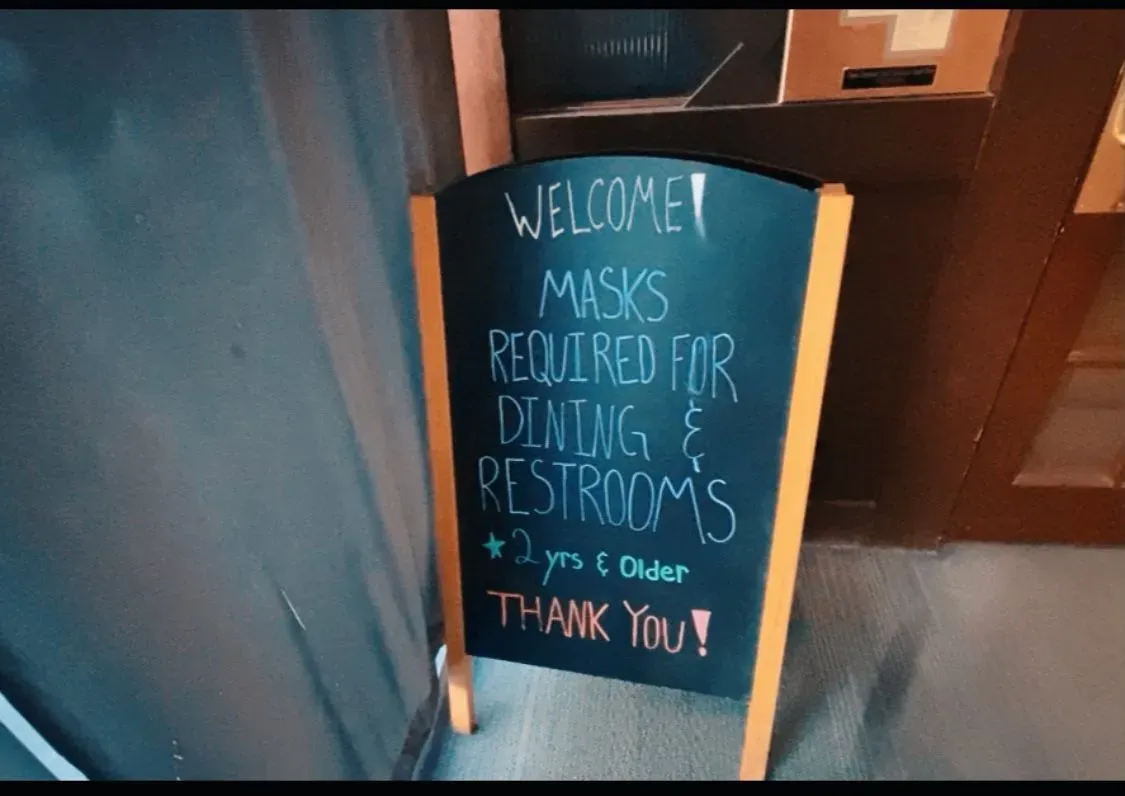 WELCOME!
MASKS
REQUIRED FOR
DINING &
RESTROOMS
★ 2 yrs & Older
THANK YOU!